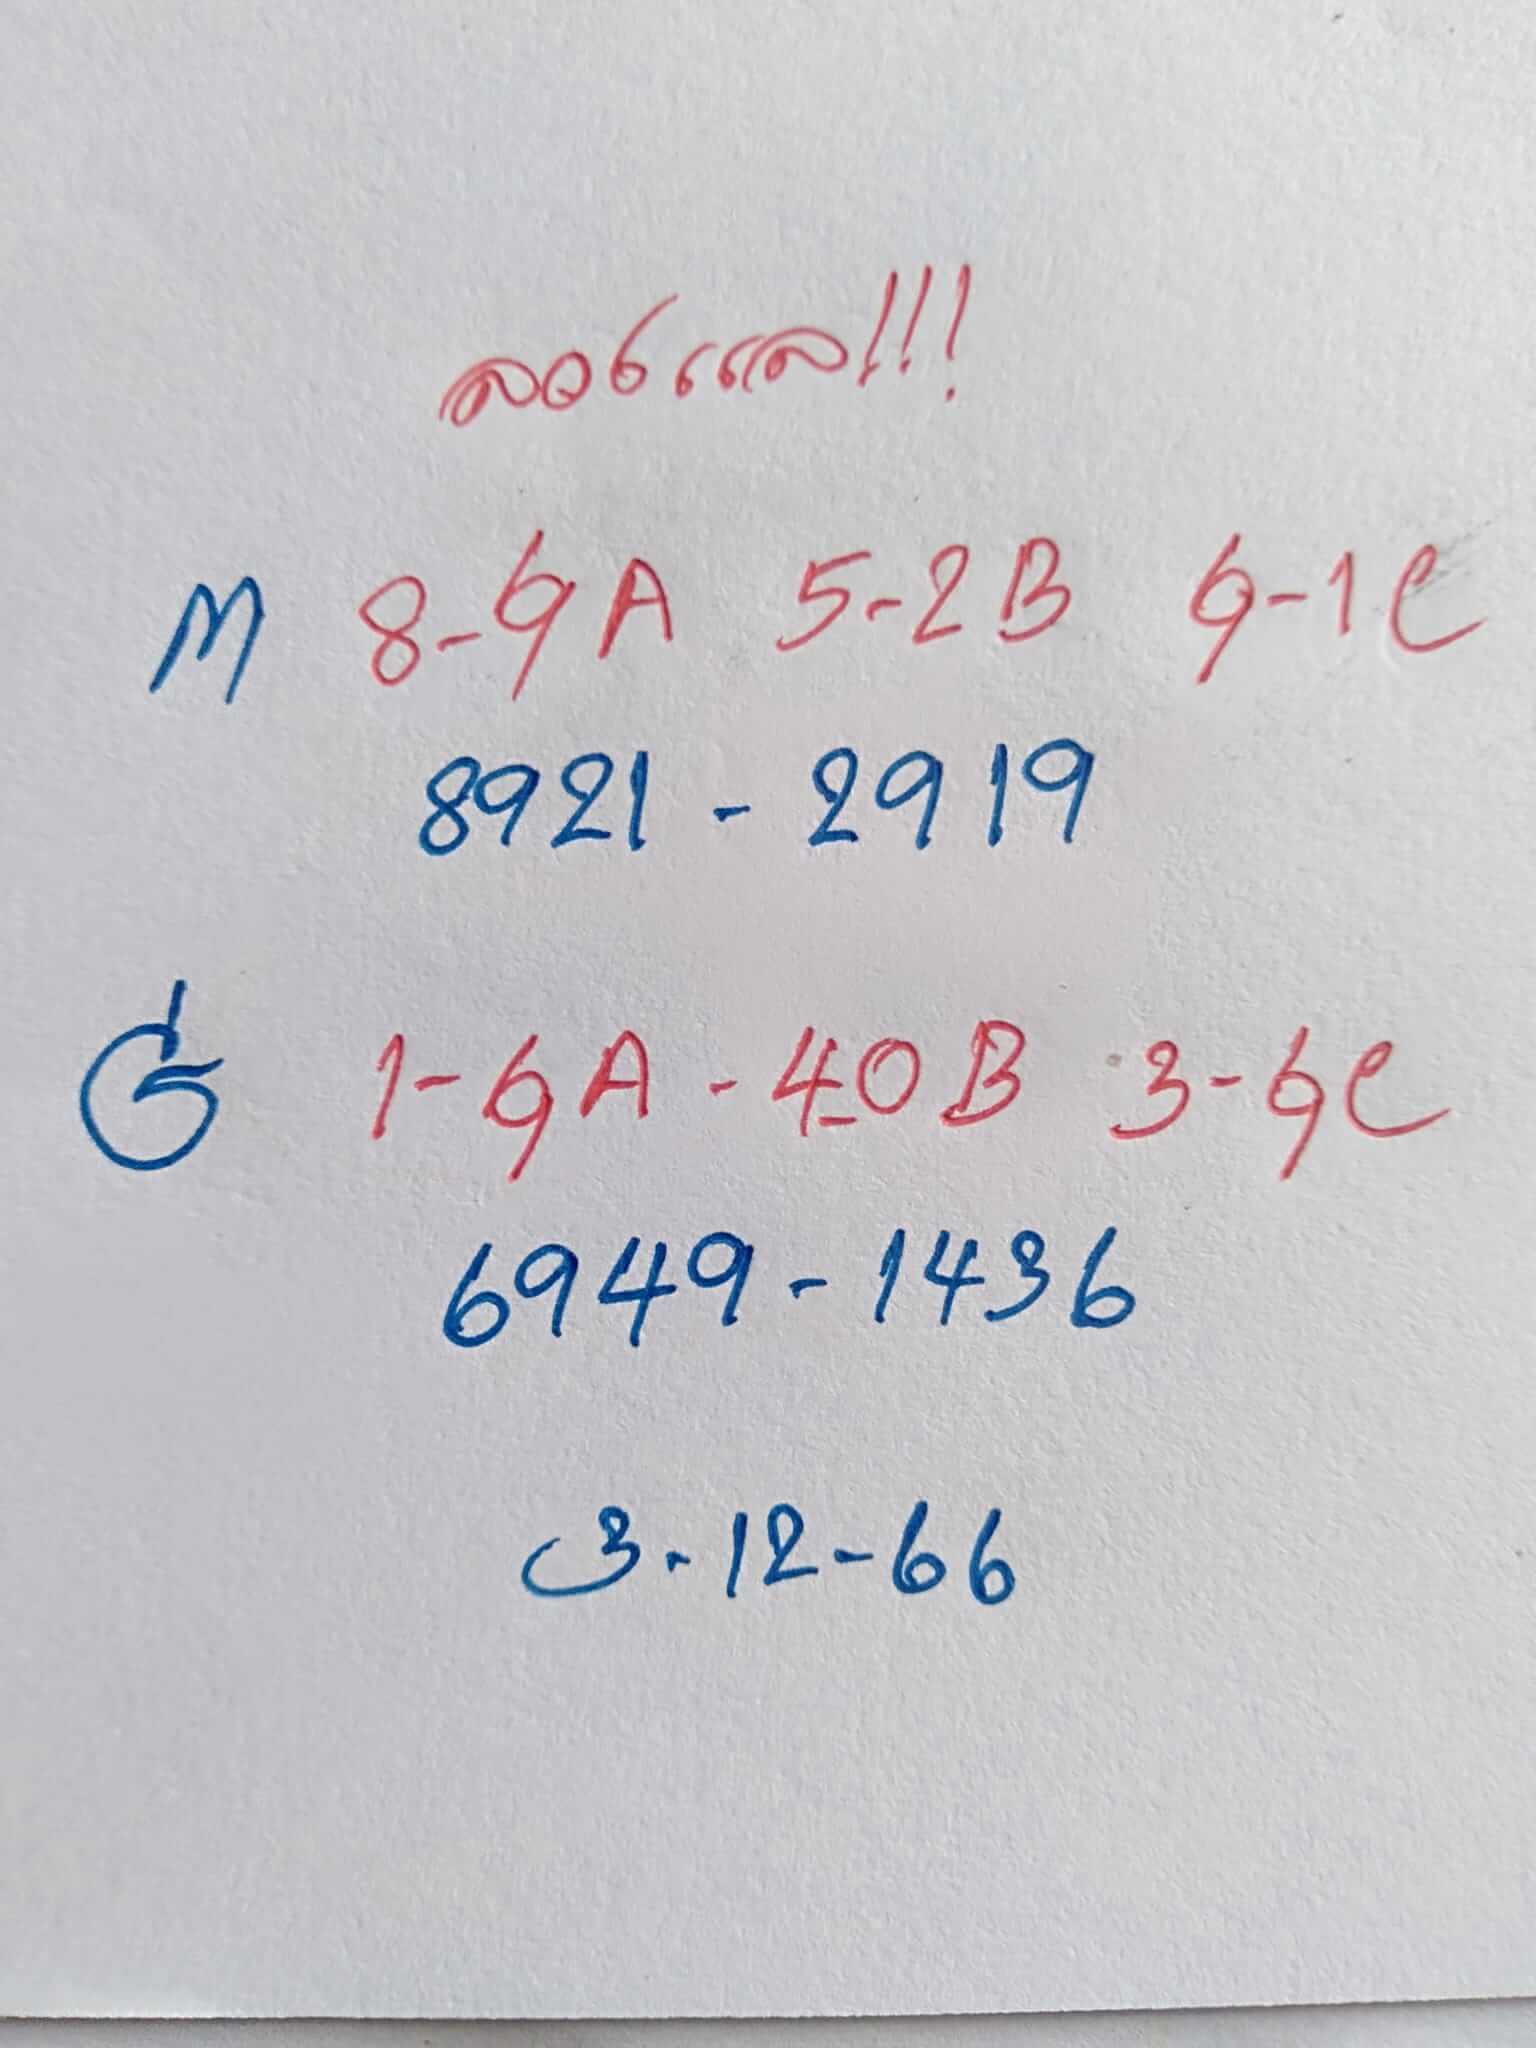 ลองแล!!!
M 8-9A 5-2B 9-1C
8921 - 2919
1-9A - 4-0B 3-9C
6949 - 1436
3-12-66